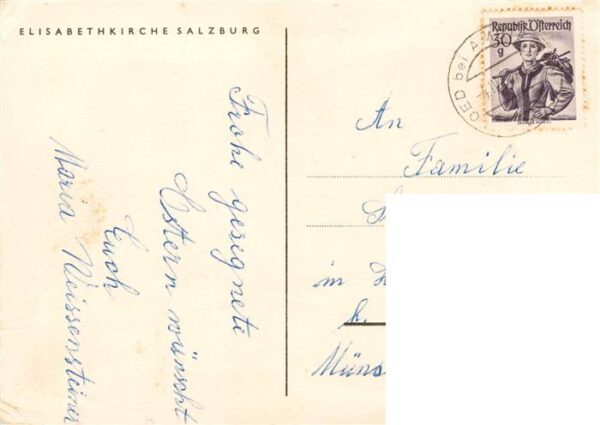 ELISABETHKIRCHE SALZBURG
Frohe gesegnete
Ostern wünscht
Euch
Maria Weissensteiner
Republik Österreich
30
g
OED bei AM
An
Familie
in
k.
Münc